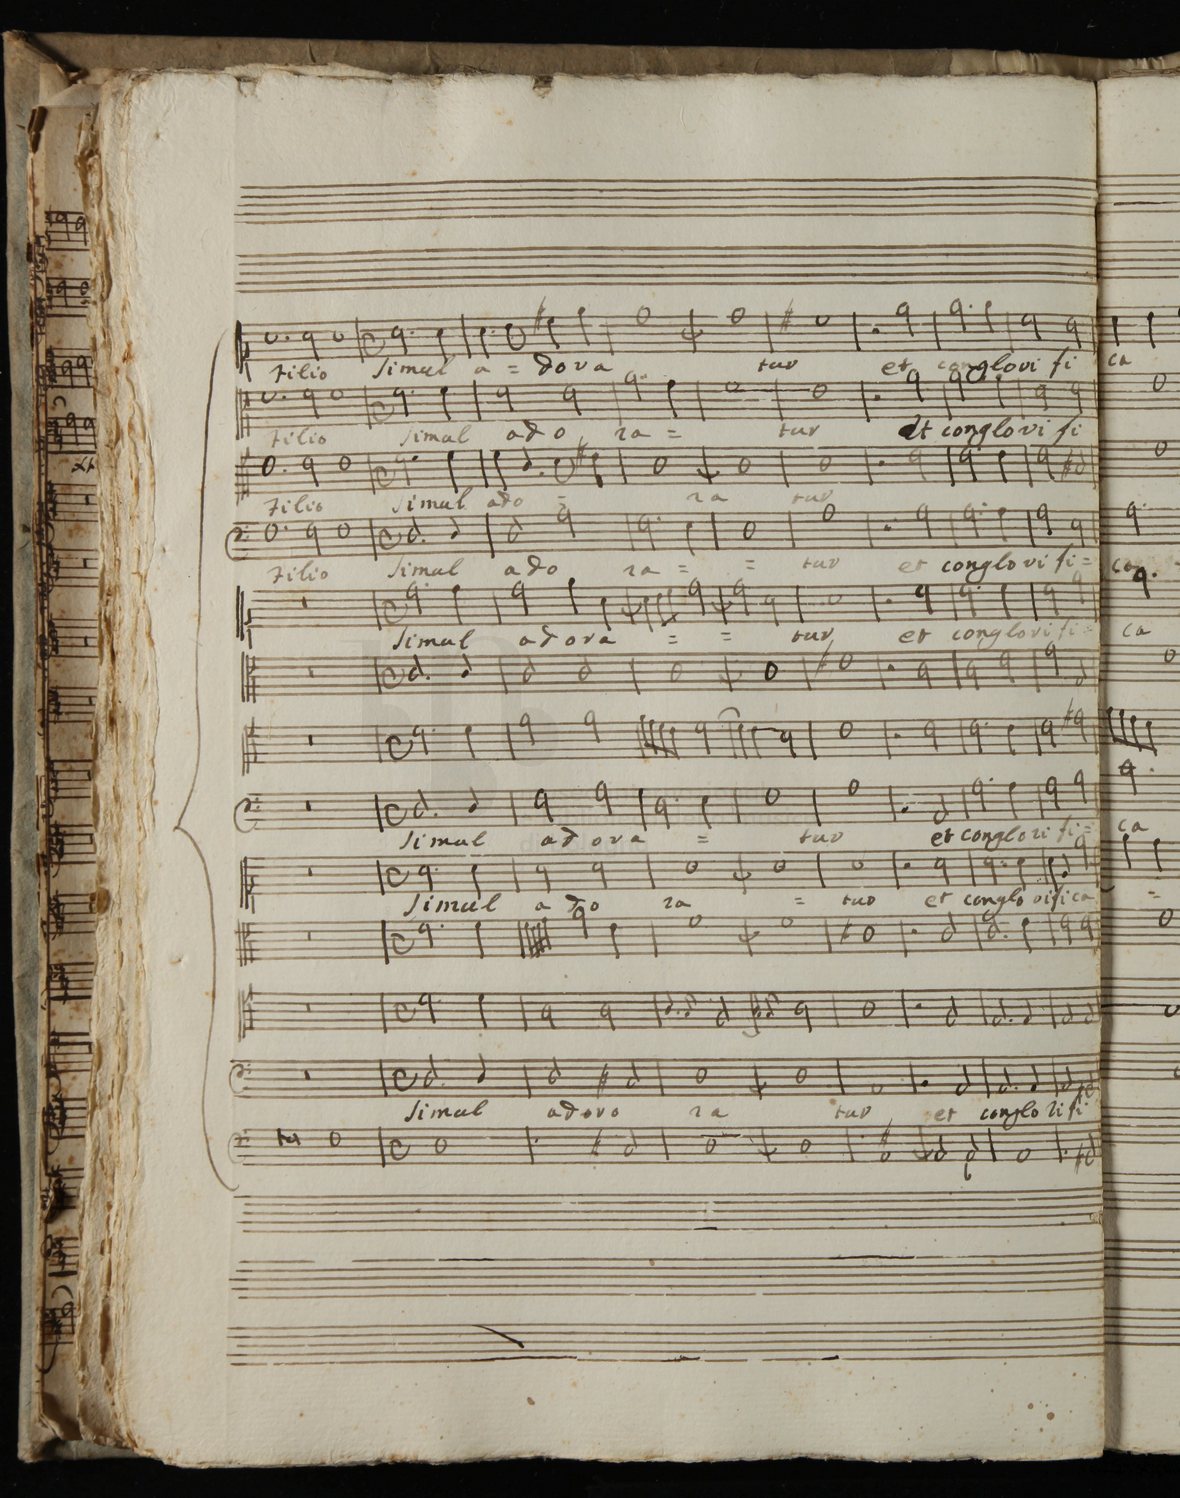 filio simul a = dora tur et conglorifi ca
filio simul ado ra = tur et conglorifi
filio simul ado = ra tur
filio simul ado ra = = tur et conglorifi = ca
simul adora = = tur et conglorifi = ca
simul adora = tur et conglorifi = ca
simul ado ra = tur et conglorifica =
simul adora ra tur et conglorifi